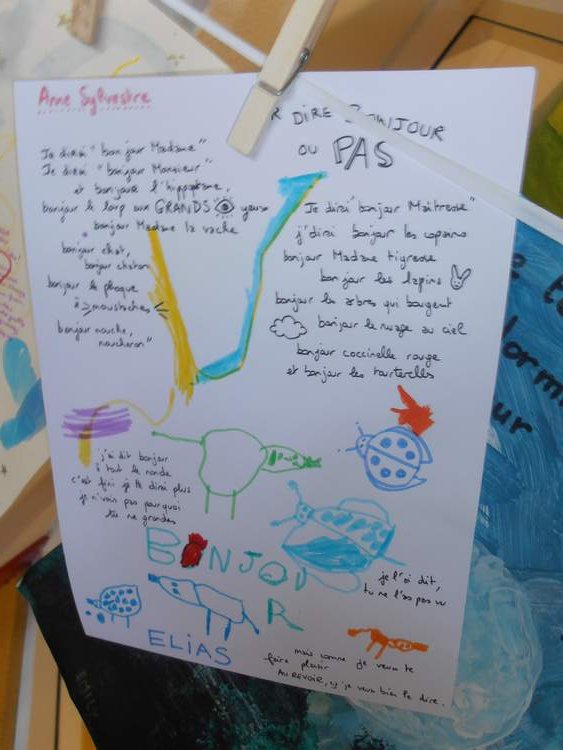 Anne Sylvestre
R DIRE BONJOUR
OU PAS
Je dirai "bonjour Madame"
Je dirai "bonjour Monsieur"
et bonjour l'hippopotame,
bonjour le loup aux GRANDS yeux
bonjour Madame la vache
bonjour chat,
bonjour chaton
bonjour le phoque
à moustaches
bonjour mouche,
moucheron"
Je dirai "bonjour Maîtresse"
j'dirai bonjour les copains
bonjour Madame tigresse
bonjour les lapins
bonjour les arbres qui bougent
bonjour le nuage au ciel
bonjour coccinelle rouge
et bonjour les tourterelles
j'ai dit bonjour
à tout le monde
c'est fini je le dirai plus
je n'vois pas pourquoi
tu me grondes
BONJOU
R
je l'ai dit,
tu ne l'as pas vu
ELIAS
mais comme je veux te
faire plaisir
AU REVOIR, je veux bien le dire.